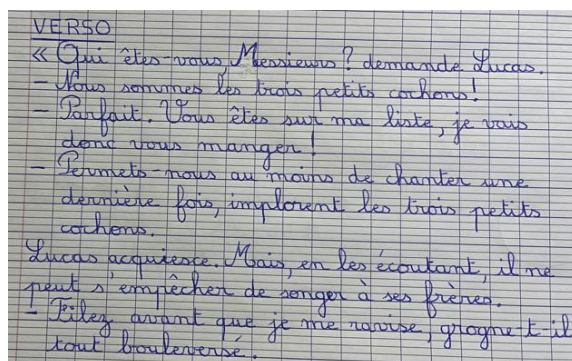 VERSO
« Qui êtes-vous, Messieurs ? demande Lucas.
- Nous sommes les trois petits cochons !
- Parfait. Vous êtes sur ma liste, je vais
donc vous manger !
- Permets-nous au moins de chanter une
dernière fois, implorent les trois petits
cochons.
Lucas acquiesce. Mais, en les écoutant, il ne
peut s'empêcher de songer à ses frères.
- Filez avant que je me ravise, grogne-t-il
tout bouleversé.